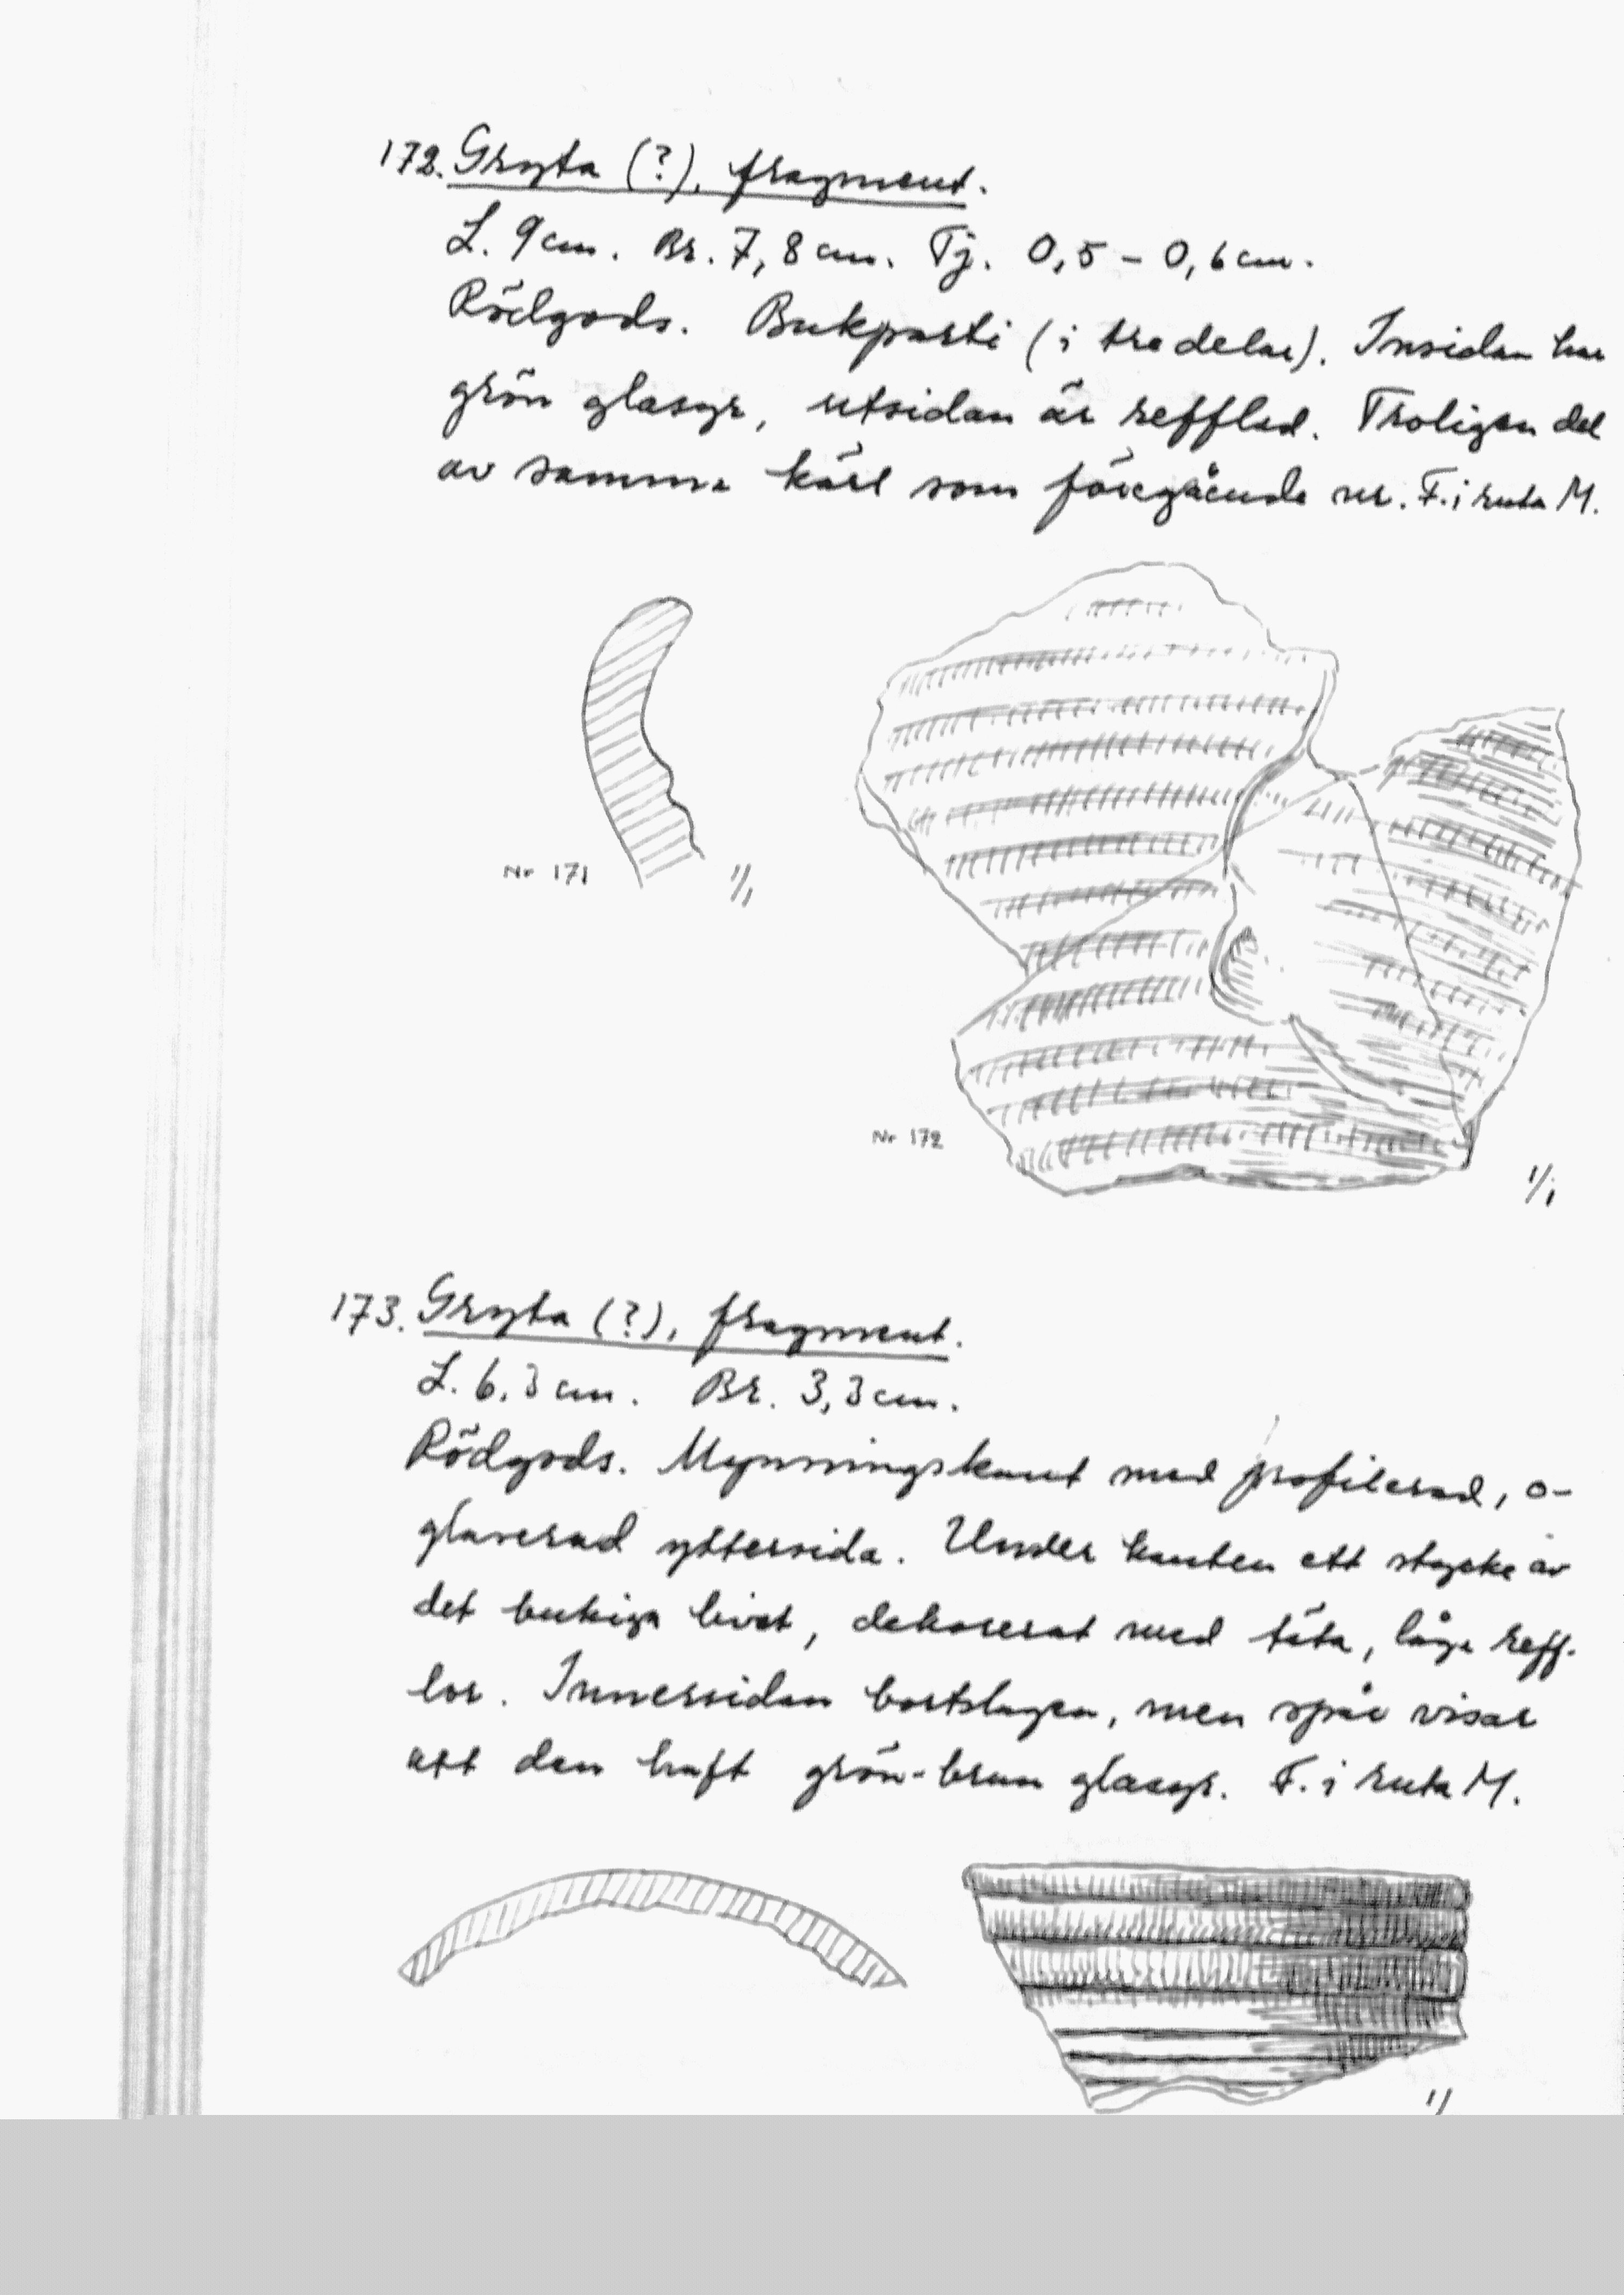 172. Gryta (?), fragment.
L. 9 cm. Br. 7,8 cm. Tj. 0,5 – 0,6 cm.
Rödgods. Bukparti (i tre delar). Insidan har
grön glasyr, utsidan är refflad. Troligen del
av samma kärl som föregående nr. F. i ruta M.
Nr 171
1/1
Nr 172
1/1
173. Gryta (?), fragment.
L. 6,3 cm. Br. 3,3 cm.
Rödgods. Mynningskant med profilerad, o-
glaserad yttersida. Under kanten ett stycke av
det bukiga livet, dekorerat med täta, låga reff-
lor. Innersidan bortslagen, men spår visar
att den haft grön-brun glasyr. F. i ruta M.
1/